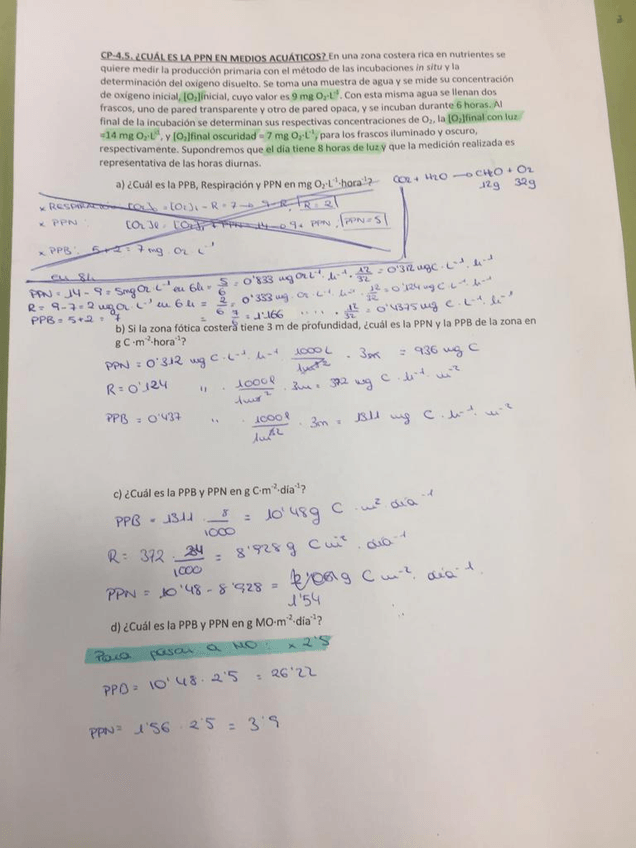 CP-4.5. ¿CUÁL ES LA PPN EN MEDIOS ACUÁTICOS? En una zona costera rica en nutrientes se
quiere medir la producción primaria con el método de las incubaciones in situ y la
determinación del oxígeno disuelto. Se toma una muestra de agua y se mide su concentración
de oxígeno inicial, [O₂]inicial, cuyo valor es 9 mg O₂·L⁻¹. Con esta misma agua se llenan dos
frascos, uno de pared transparente y otro de pared opaca, y se incuban durante 6 horas. Al
final de la incubación se determinan sus respectivas concentraciones de O₂, la [O₂]final con luz
=14 mg O₂·L⁻¹, y [O₂]final oscuridad = 7 mg O₂·L⁻¹, para los frascos iluminado y oscuro,
respectivamente. Supondremos que el día tiene 8 horas de luz y que la medición realizada es
representativa de las horas diurnas.
a) ¿Cuál es la PPB, Respiración y PPN en mg O₂·L⁻¹·hora⁻¹?
CO₂ + H₂O → CH₂O + O₂
12g 32g
x RESPIRACIÓN [O₂]f = [O₂]i - R = 7 → 9-R, R = 2
x PPN: [O₂]f = [O₂]i + PPN = 14 → 9 + PPN, PPN = 5
x PPB: 5+2 = 7 mg O₂ L⁻¹
en 8h
PPN = 14 - 9 = 5mg O₂ L⁻¹ en 6h = 5/6 = 0'833 mg O₂ L⁻¹ · h⁻¹ · 12/32 = 0'312 mg C · L⁻¹ · h⁻¹
R = 9-7 = 2 mg O₂ L⁻¹ en 6h = 2/6 = 0'333 mg · O₂ · L⁻¹ h⁻¹ · 12/32 = 0'124 mg C · L⁻¹ · h⁻¹
PPB = 5+2 = 7 7/6 = 1'166 " " · 12/32 = 0'4375 mg C · L⁻¹ · h⁻¹
b) Si la zona fótica costera tiene 3 m de profundidad, ¿cuál es la PPN y la PPB de la zona en
g C·m⁻²·hora⁻¹?
PPN = 0'312 mg C · L⁻¹ · h⁻¹ 1000 L/1m³ · 3m = 936 mg C
R = 0'124 " · 1000 l/1m³ · 3m = 372 mg C · h⁻¹ · m⁻²
PPB = 0'437 " · 1000 l/1m³ · 3m = 1311 mg C · h⁻¹ · m⁻²
c) ¿Cuál es la PPB y PPN en g C·m⁻²·día⁻¹?
PPB = 1311 · 8/1000 = 10'48g C · m⁻² día⁻¹
R = 372 · 24/1000 = 8'928 g C m⁻² · día⁻¹
PPN = 10'48 - 8'928 = g C m⁻² · día⁻¹
1'54
d) ¿Cuál es la PPB y PPN en g MO·m⁻²·día⁻¹?
Para pasar a MO: x 2'5
PPB = 10'48 · 2'5 = 26'22
PPN = 1'56 · 2'5 = 3'9